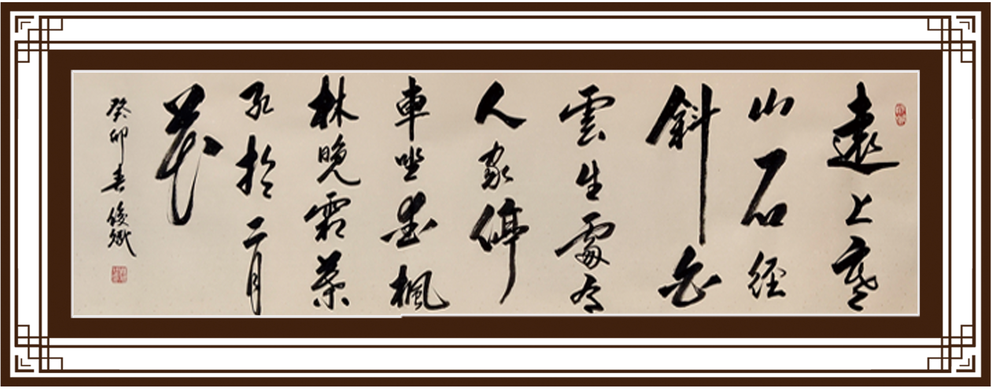 遠上寒
山石徑
斜白
雲生處有
人家停
車坐愛楓
林晚霜葉
紅於二月
花
癸卯春俊斌